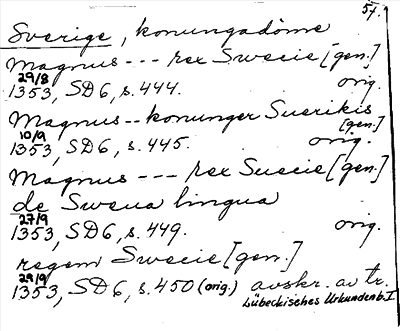 57.
Sverige, konungadöme
Magnus --- rex Swecie [gen.]
29/8 1353, SD6, s. 444. orig.
Magnus -- konunger Suerikis [gen.]
10/9 1353, SD6, s. 445. orig.
Magnus --- rex Suecie [gen.]
de Swena lingua
27/9 1353, SD6, s. 449. orig.
regem Swecie [gen.]
29/9 1353, SD6, s. 450 (orig.) avskr. av tr.
Lübeckisches Urkundenb. I